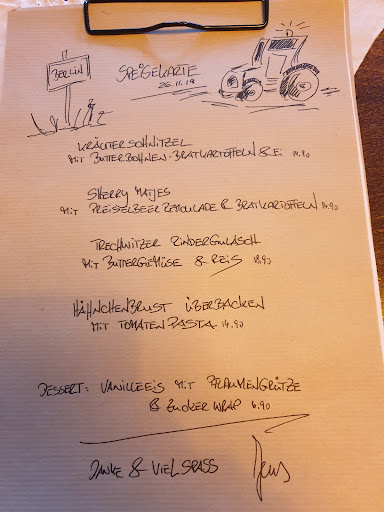 BERLIN
SPEISEKARTE
26.11.19
KRÄUTERSCHNITZEL
MIT BUTTERBOHNEN-BRATKARTOFFELN & EI 14.90
SHERRY MATJES
MIT PREISELBEER REMOULADE & BRATKARTOFFELN 14.90
TRECHWITZER RINDERGULASCH
MIT BUTTERGEMÜSE & REIS 18.90
HÄHNCHENBRUST ÜBERBACKEN
MIT TOMATENPASTA 14.90
DESSERT: VANILLEEIS MIT PFLAUMENGRÜTZE
& ZUCKER WRAP 6.90
DANKE & VIEL SPASS